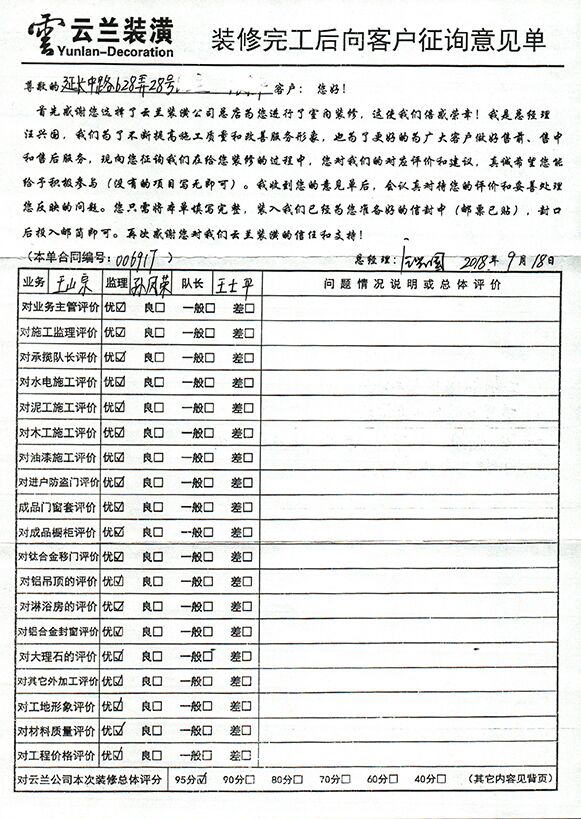 雲 云兰装潢
Yunlan-Decoration
装修完工后向客户征询意见单
尊敬的 延长中路628弄28号 客户： 您好！
首先感谢您选择了云兰装潢公司总店为您进行了室内装修，这使我们倍感荣幸！我是总经理
汪兴国，我们为了不断提高施工质量和改善服务形象，也为了更好的为广大客户做好售前、售中
和售后服务，现向您征询我们在给您装修的过程中，您对我们的对应评价和建议，真诚希望您能
给予积极参与（没有的项目写无即可）。我收到您的意见单后，会认真对待您的评价和妥善处理
您反映的问题。您只需将本单填写完整，装入我们已经为您准备好的信封中（邮票已贴），封口
后投入邮筒即可。再次感谢您对我们云兰装潢的信任和支持！
（本单合同编号：006917 ） 总经理： 2018年 9月 18日
业务 王山泉 监理 孙凤荣 队长 王士平 问题情况说明或总体评价
对业务主管评价 优☑ 良□ 一般□ 差□
对施工监理评价 优☑ 良□ 一般□ 差□
对承揽队长评价 优☑ 良□ 一般□ 差□
对水电施工评价 优☑ 良□ 一般□ 差□
对泥工施工评价 优☑ 良□ 一般□ 差□
对木工施工评价 优☑ 良□ 一般□ 差□
对油漆施工评价 优☑ 良□ 一般□ 差□
对进户防盗门评价 优☑ 良□ 一般□ 差□
成品门窗套评价 优☑ 良□ 一般□ 差□
对成品橱柜评价 优☑ 良□ 一般□ 差□
对钛合金移门评价 优☑ 良□ 一般□ 差□
对铝吊顶的评价 优☑ 良□ 一般□ 差□
对淋浴房的评价 优☑ 良□ 一般□ 差□
对铝合金封窗评价 优☑ 良□ 一般□ 差□
对大理石的评价 优☑ 良□ 一般□ 差□
对其它外加工评价 优☑ 良□ 一般□ 差□
对工地形象评价 优☑ 良□ 一般□ 差□
对材料质量评价 优☑ 良□ 一般□ 差□
对工程价格评价 优☑ 良□ 一般□ 差□
对云兰公司本次装修总体评分 95分☑ 90分□ 80分□ 70分□ 60分□ 40分□ （其它内容见背页）